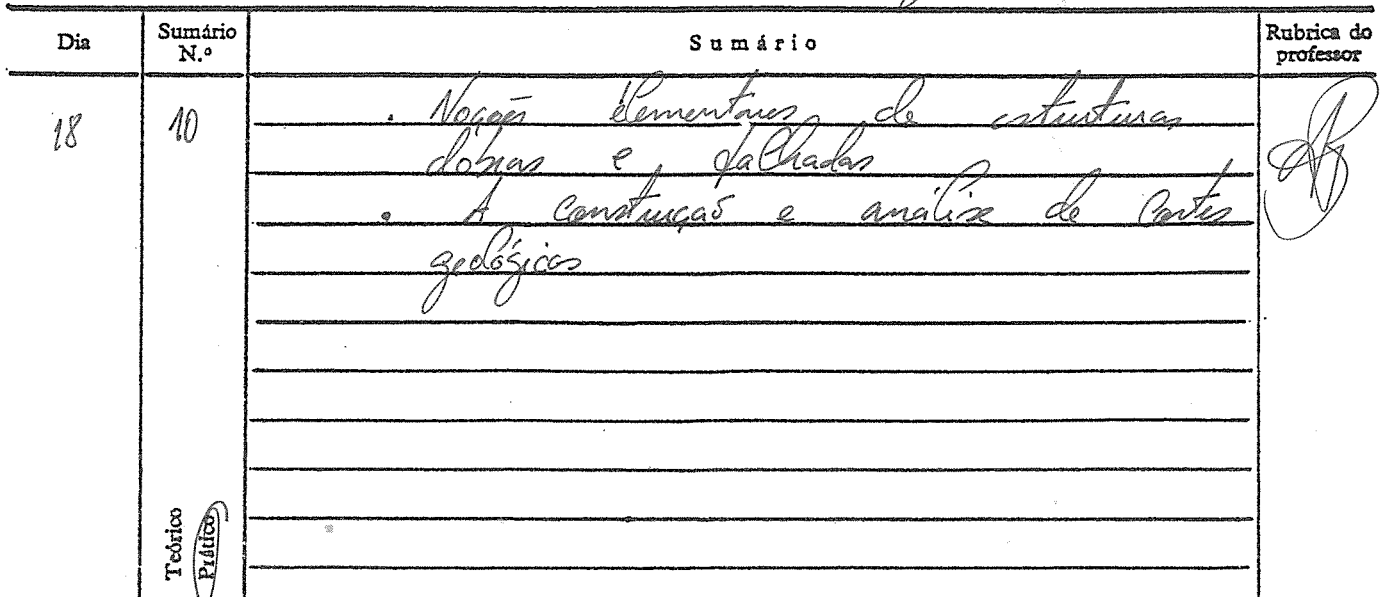 Dia
Sumário
N.º
Sumário
Rubrica do
professor
18
10
. Noções elementares de estruturas
dobras e falhadas
. A construção e análise de cortes
geológicos
Teórico
Prático